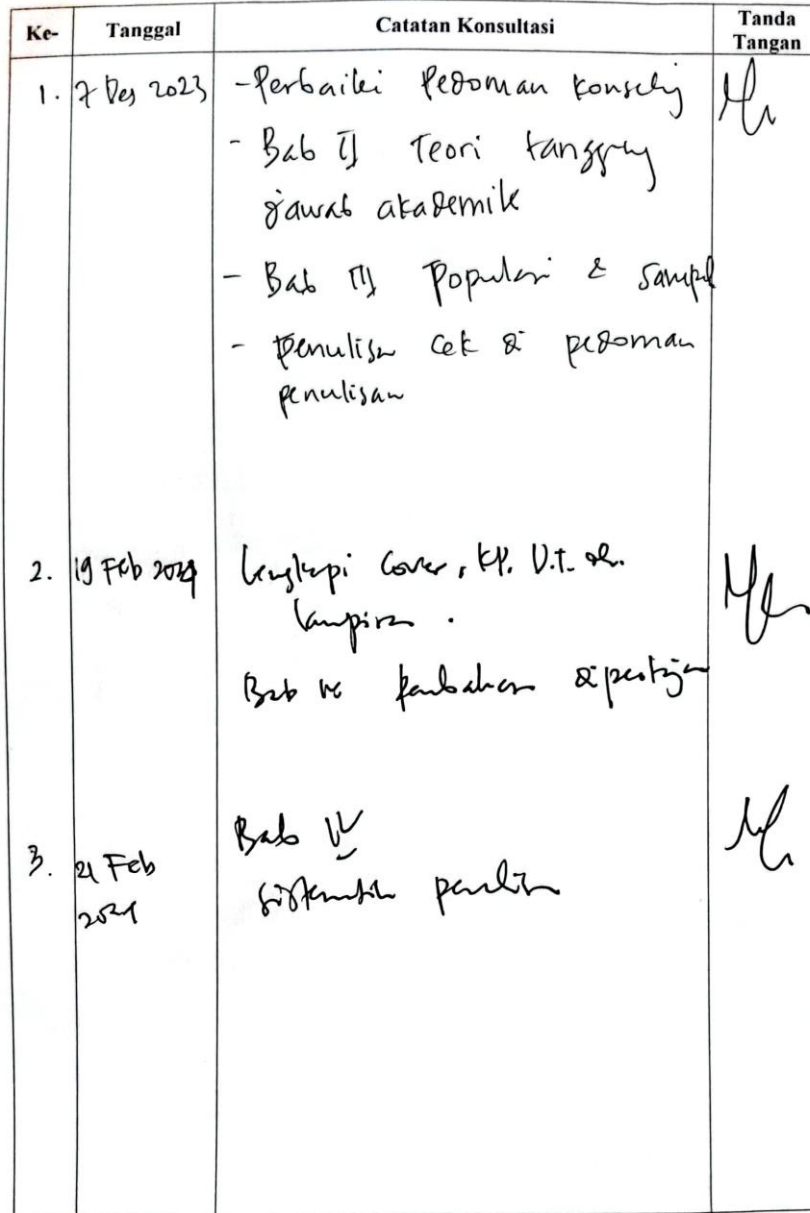 Ke- Tanggal Catatan Konsultasi Tanda Tangan
1. 7 Des 2023 - Perbaiki Pedoman Konseling
- Bab II Teori tanggung
jawab akademik
- Bab III Populasi & Sampel
- Penulisan cek di pedoman
penulisan
2. 19 Feb 2024 Lengkapi Cover, KP.
lampiran.
Bab pembahasan dipertajam
3. 21 Feb
2024
Bab IV
Sistematik penulisan